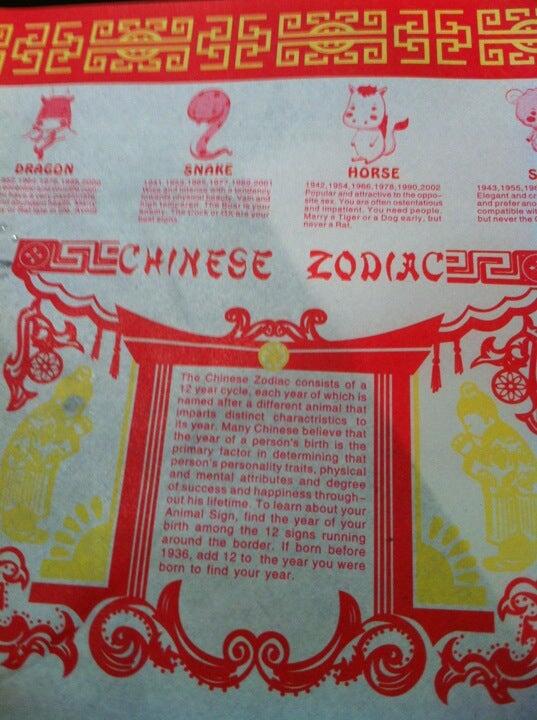 DRAGON
SNAKE
1941,1953,1965,1977,1989,2001
Wise and intense with a tendency
towards physical beauty. Vain and
high tempered. The Boar is your
enemy. The Cock or Ox are your
best signs.
HORSE
1942,1954,1966,1978,1990,2002
Popular and attractive to the oppo-
site sex. You are often ostentatious
and impatient. You need people.
Marry a Tiger or a Dog early, but
never a Rat.
S
1943,1955,19
Elegant and cr
and prefer ano
compatible wi
but never the
CHINESE ZODIAC
The Chinese Zodiac consists of a
12 year cycle, each year of which is
named after a different animal that
imparts distinct charactristics to
its year. Many Chinese believe that
the year of a person's birth is the
primary factor in determining that
person's personality traits, physical
and mental attributes and degree
of success and happiness through-
out his lifetime. To learn about your
Animal Sign, find the year of your
birth among the 12 signs running
around the border. If born before
1936, add 12 to the year you were
born to find your year.